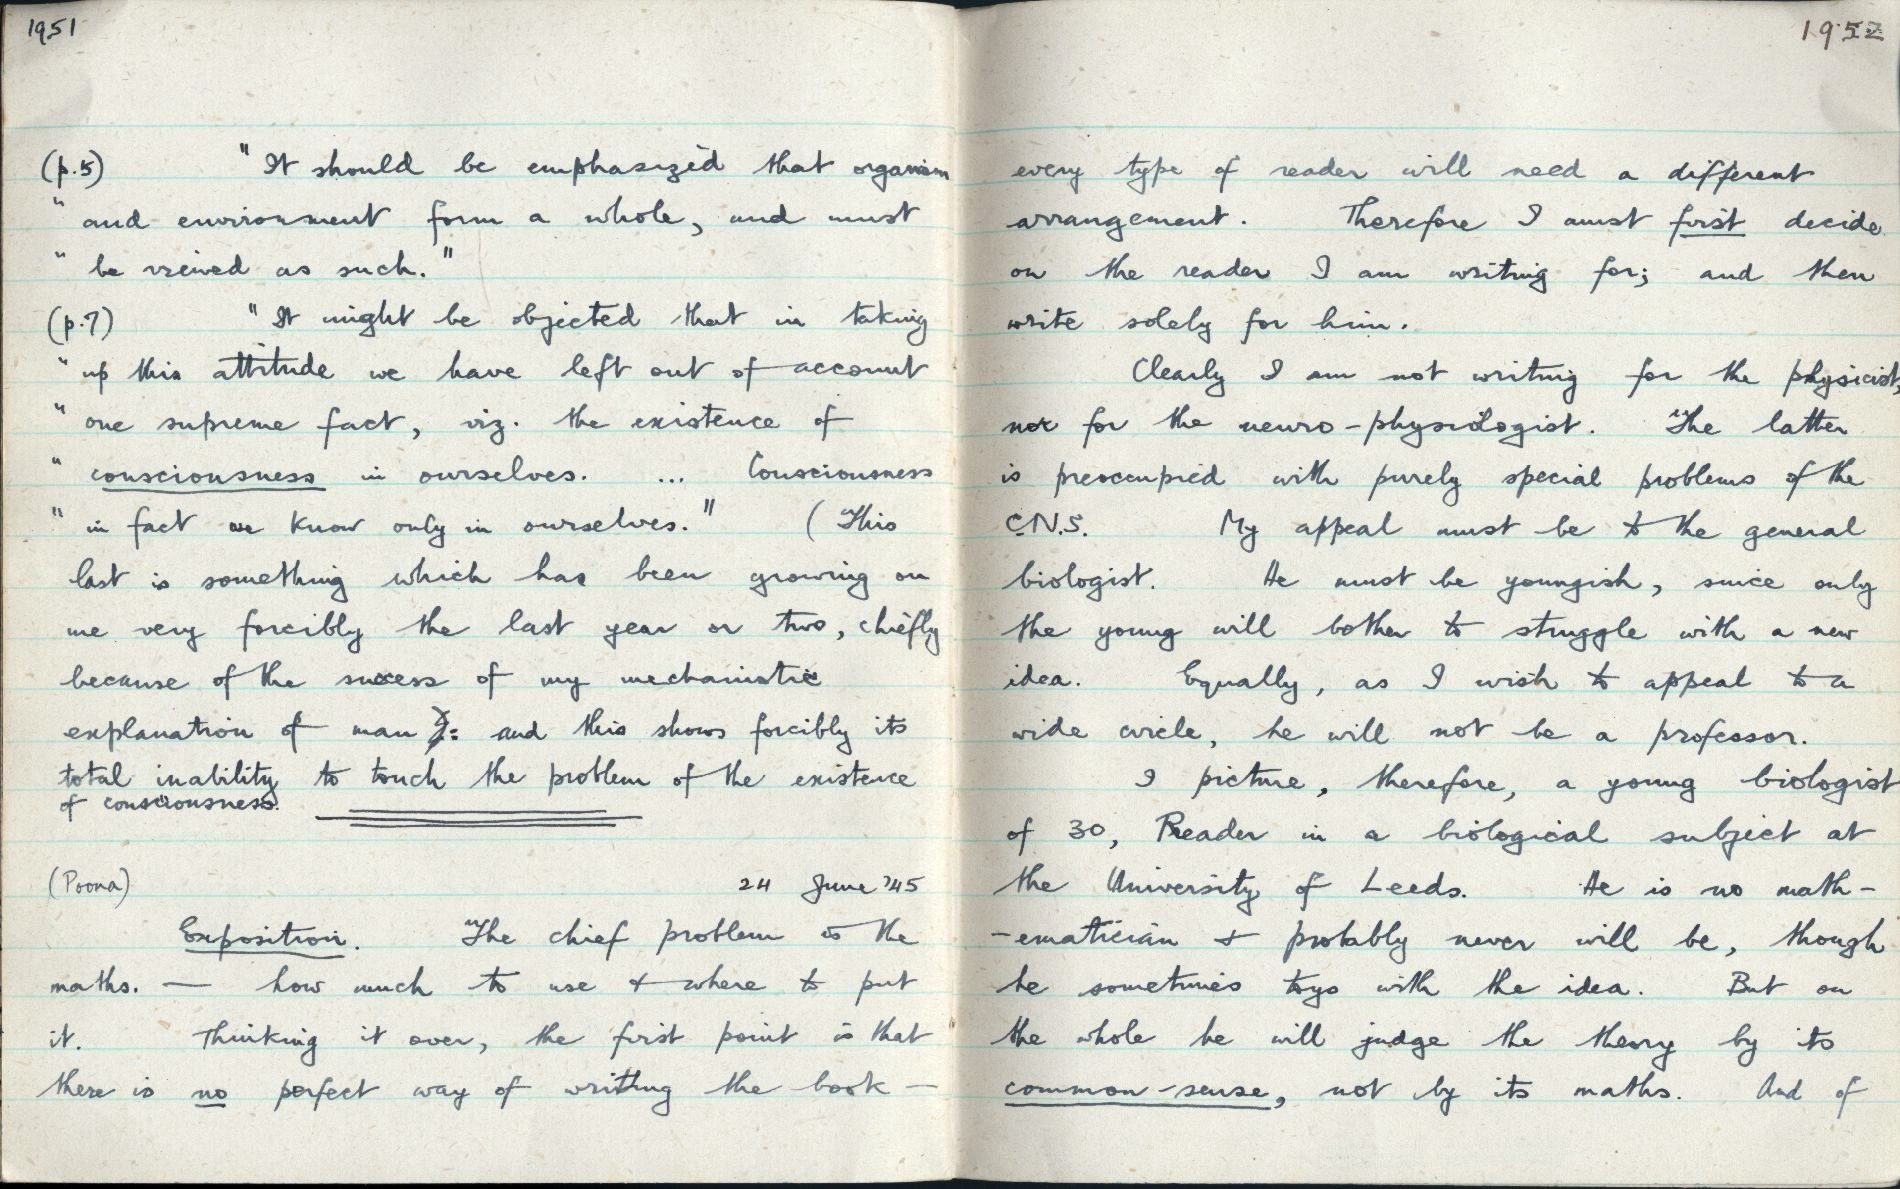 1951
(p.5) "It should be emphasized that organism
" and environment form a whole, and must
" be viewed as such."
(p.7) "It might be objected that in taking
" up this attitude we have left out of account
" one supreme fact, viz. the existence of
" consciousness in ourselves. ... Consciousness
" in fact we know only in ourselves." (This
last is something which has been growing on
me very forcibly the last year or two, chiefly
because of the success of my mechanistic
explanation of man : and this shows forcibly its
total inability to touch the problem of the existence
of consciousness.
(Poona) 24 June '45
Exposition. The chief problem is the
maths. — how much to use & where to put
it. Thinking it over, the first point is that
there is no perfect way of writing the book —
1952
every type of reader will need a different
arrangement. Therefore I must first decide
on the reader I am writing for; and then
write solely for him.
Clearly I am not writing for the physicist,
nor for the neuro-physiologist. The latter
is preoccupied with purely special problems of the
C.N.S. My appeal must be to the general
biologist. He must be youngish, since only
the young will bother to struggle with a new
idea. Equally, as I wish to appeal to a
wide circle, he will not be a professor.
I picture, therefore, a young biologist
of 30, Reader in a biological subject at
the University of Leeds. He is no math-
-ematician & probably never will be, though
he sometimes toys with the idea. But on
the whole he will judge the theory by its
common-sense, not by its maths. And of